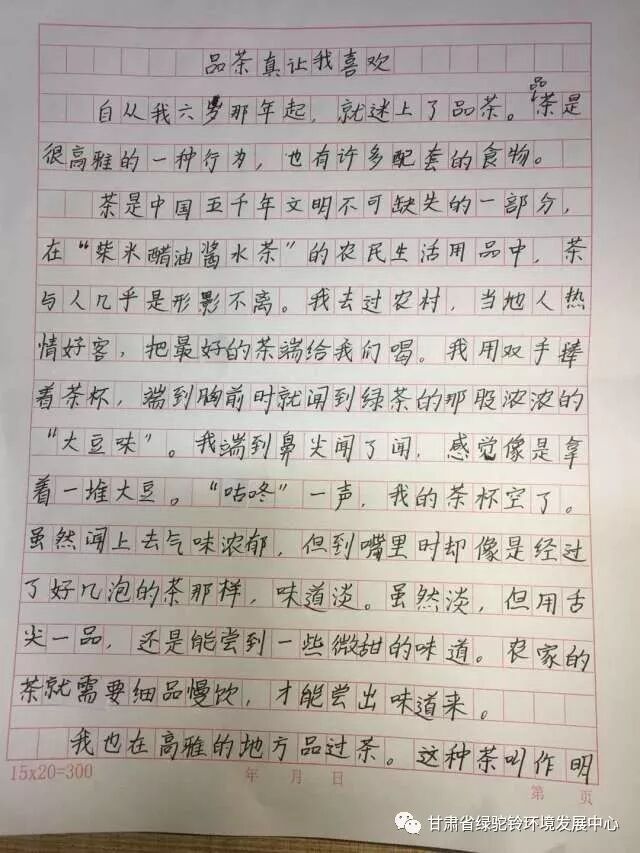 品茶真让我喜欢
自从我六岁那年起，就迷上了品茶。品茶是
很高雅的一种行为，也有许多配套的食物。
茶是中国五千年文明不可缺失的一部分，
在“柴米醋油酱水茶”的农民生活用品中，茶
与人几乎是形影不离。我去过农村，当地人热
情好客，把最好的茶端给我们喝。我用双手捧
着茶杯，端到胸前时就闻到绿茶的那股浓浓的
“大豆味”。我端到鼻尖闻了闻，感觉像是拿
着一堆大豆。“咕咚”一声，我的茶杯空了。
虽然闻上去气味浓郁，但到嘴里时却像是经过
了好几泡的茶那样，味道淡。虽然淡，但用舌
尖一品，还是能尝到一些微甜的味道。农家的
茶就需要细品慢饮，才能尝出味道来。
我也在高雅的地方品过茶。这种茶叫作明
15x20=300 年 月 日 第 页
甘肃省绿驼铃环境发展中心